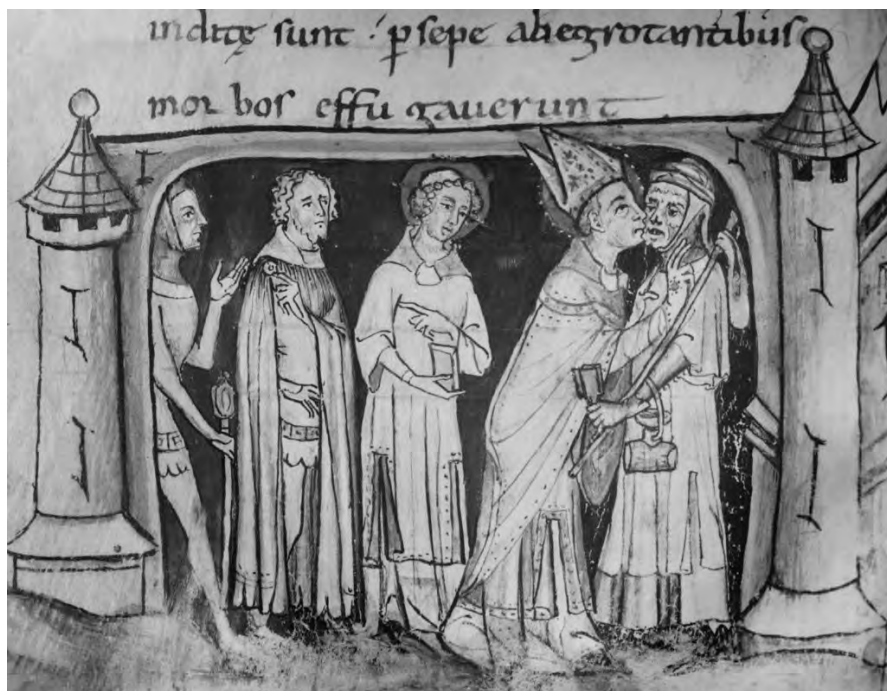 inditę sunt ·' ꝑ sepe abegrotantibus
mor bos effu gaverunt